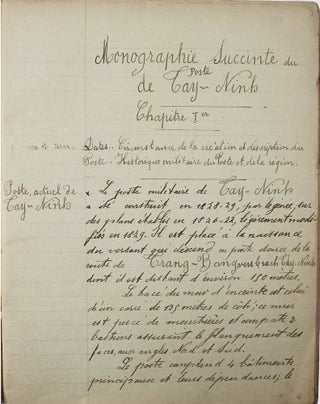 Monographie Succinte du
Poste
de Tay-Ninh
Chapitre Ier
Dates. Circonstance de la création et description du
Poste - Historique militaire du Poste et de la région.
Poste actuel de
Tay-Ninh
Le poste militaire de Tay-Ninh
a été construit en 1828-29, par
des plans établis en 1826-22, légèrement modi-
fiés en 1829. Il est placé à la naissance
du versant qui descend en pente douce de la
route de Trang-Bang vers Tay-Ninh
dont il est distant d'environ 150 mètres.
Le tracé du mur d'enceinte est celui
d'un carré de 125 mètres de côté; ce mur
est percé de meurtrières et comporte 2
bastions assurant le flanquement des
faces, aux angles Nord et Sud.
Le poste comprend 4 bâtiments
principaux et leurs dépendances; le